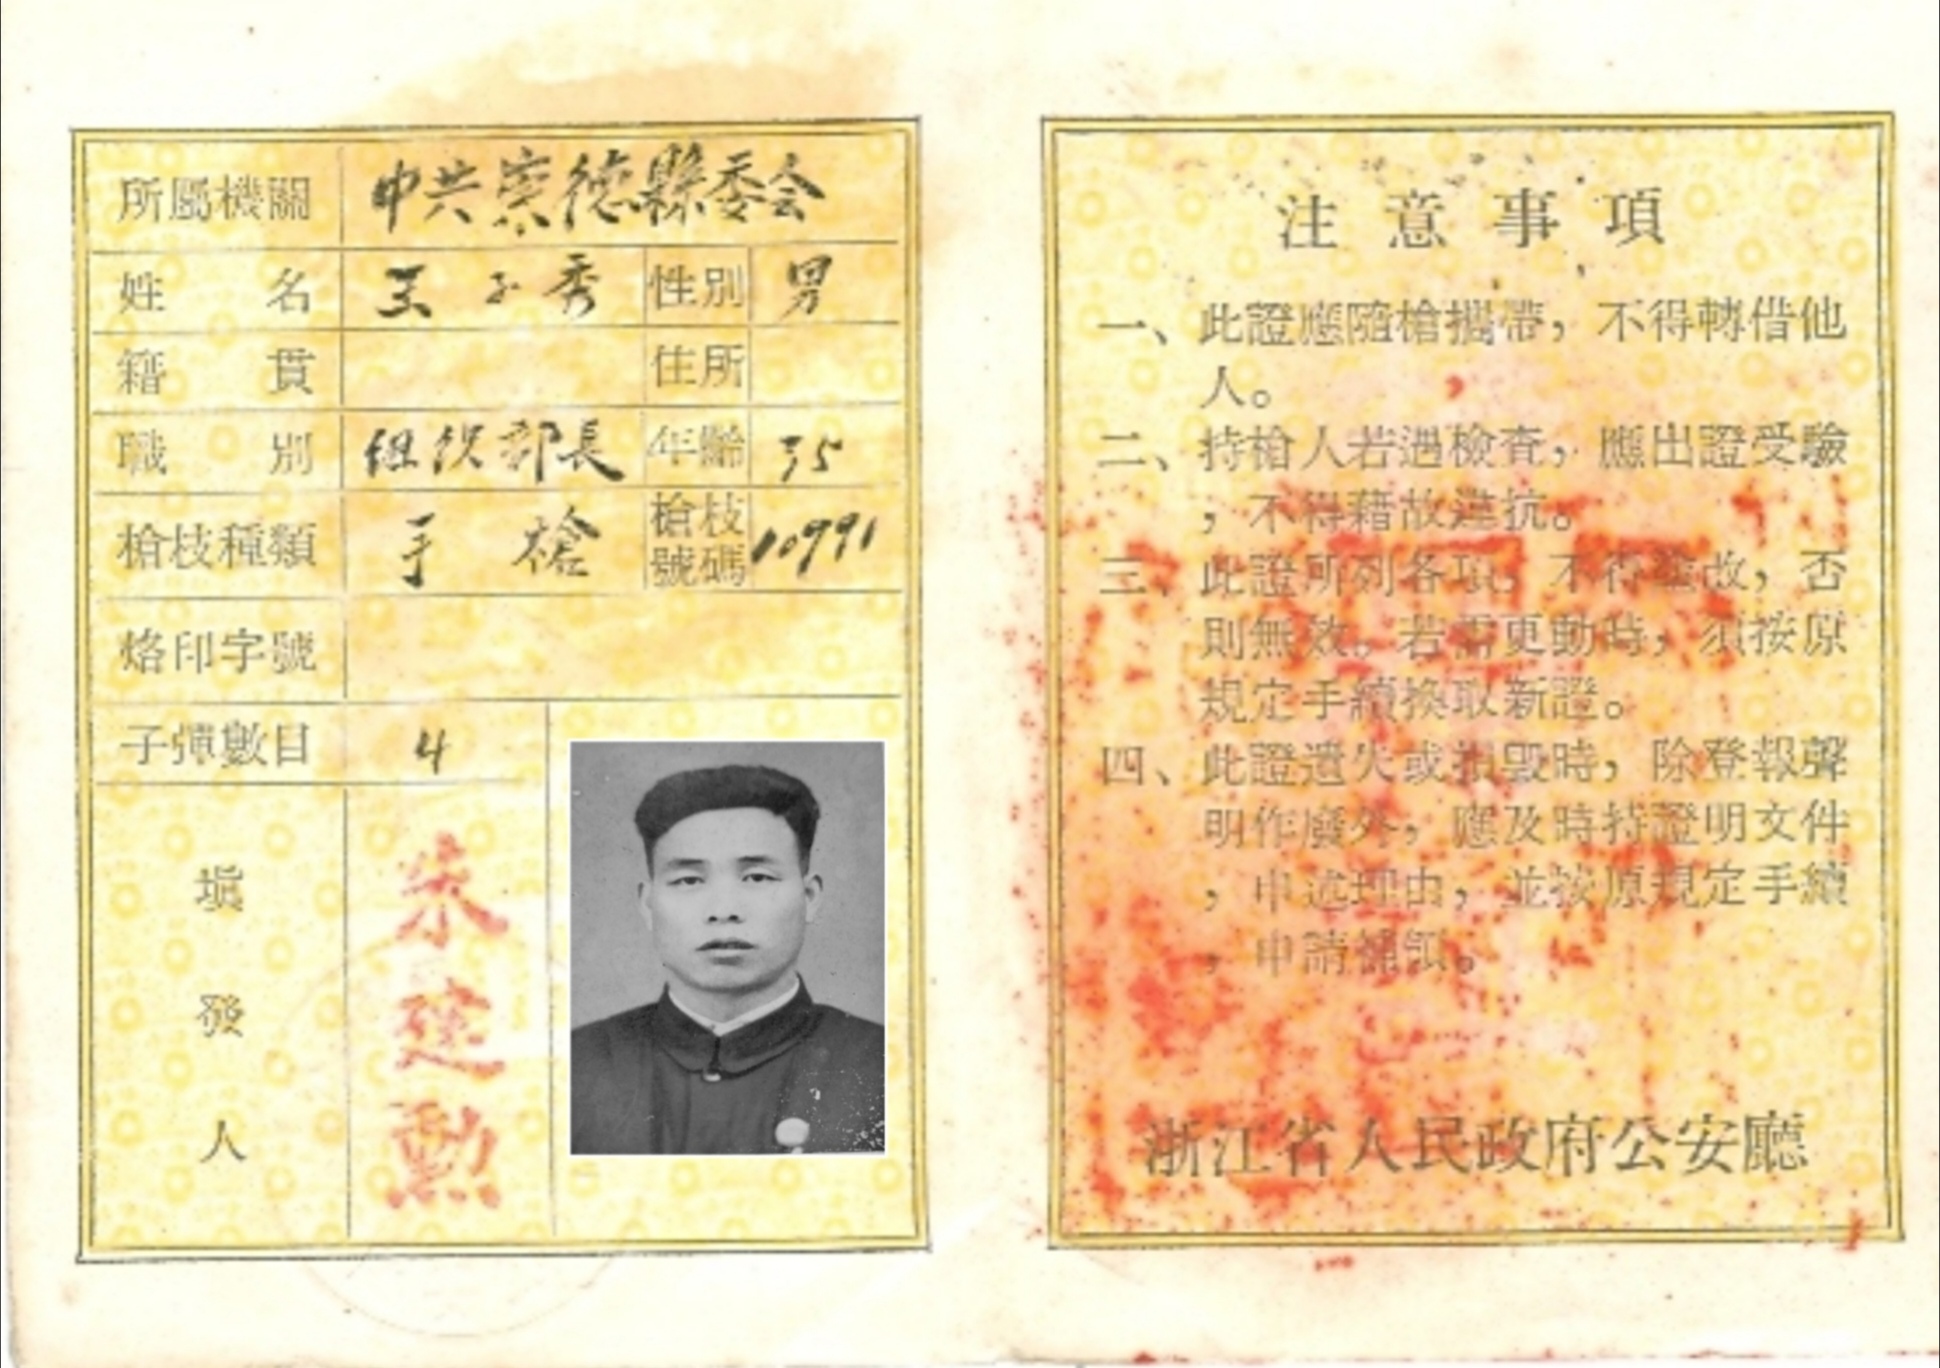 所屬機關 中共崇德縣委会
姓名 王子秀 性別 男
籍貫 住所
職別 组织部長 年齡 35
槍枝種類 手槍 槍枝號碼 10991
烙印字號
子彈數目 4
填發人 朱建勳
注意事項
一、此證應隨槍攜帶，不得轉借他
人。
二、持槍人若遇檢查，應出證受驗
，不得藉故違抗。
三、此證所列各項，不得塗改，否
則無效。若需更動時，須按原
規定手續換取新證。
四、此證遺失或損毀時，除登報聲
明作廢外，應及時持證明文件
，申述理由，並按原規定手續
，申請補領。
浙江省人民政府公安廳